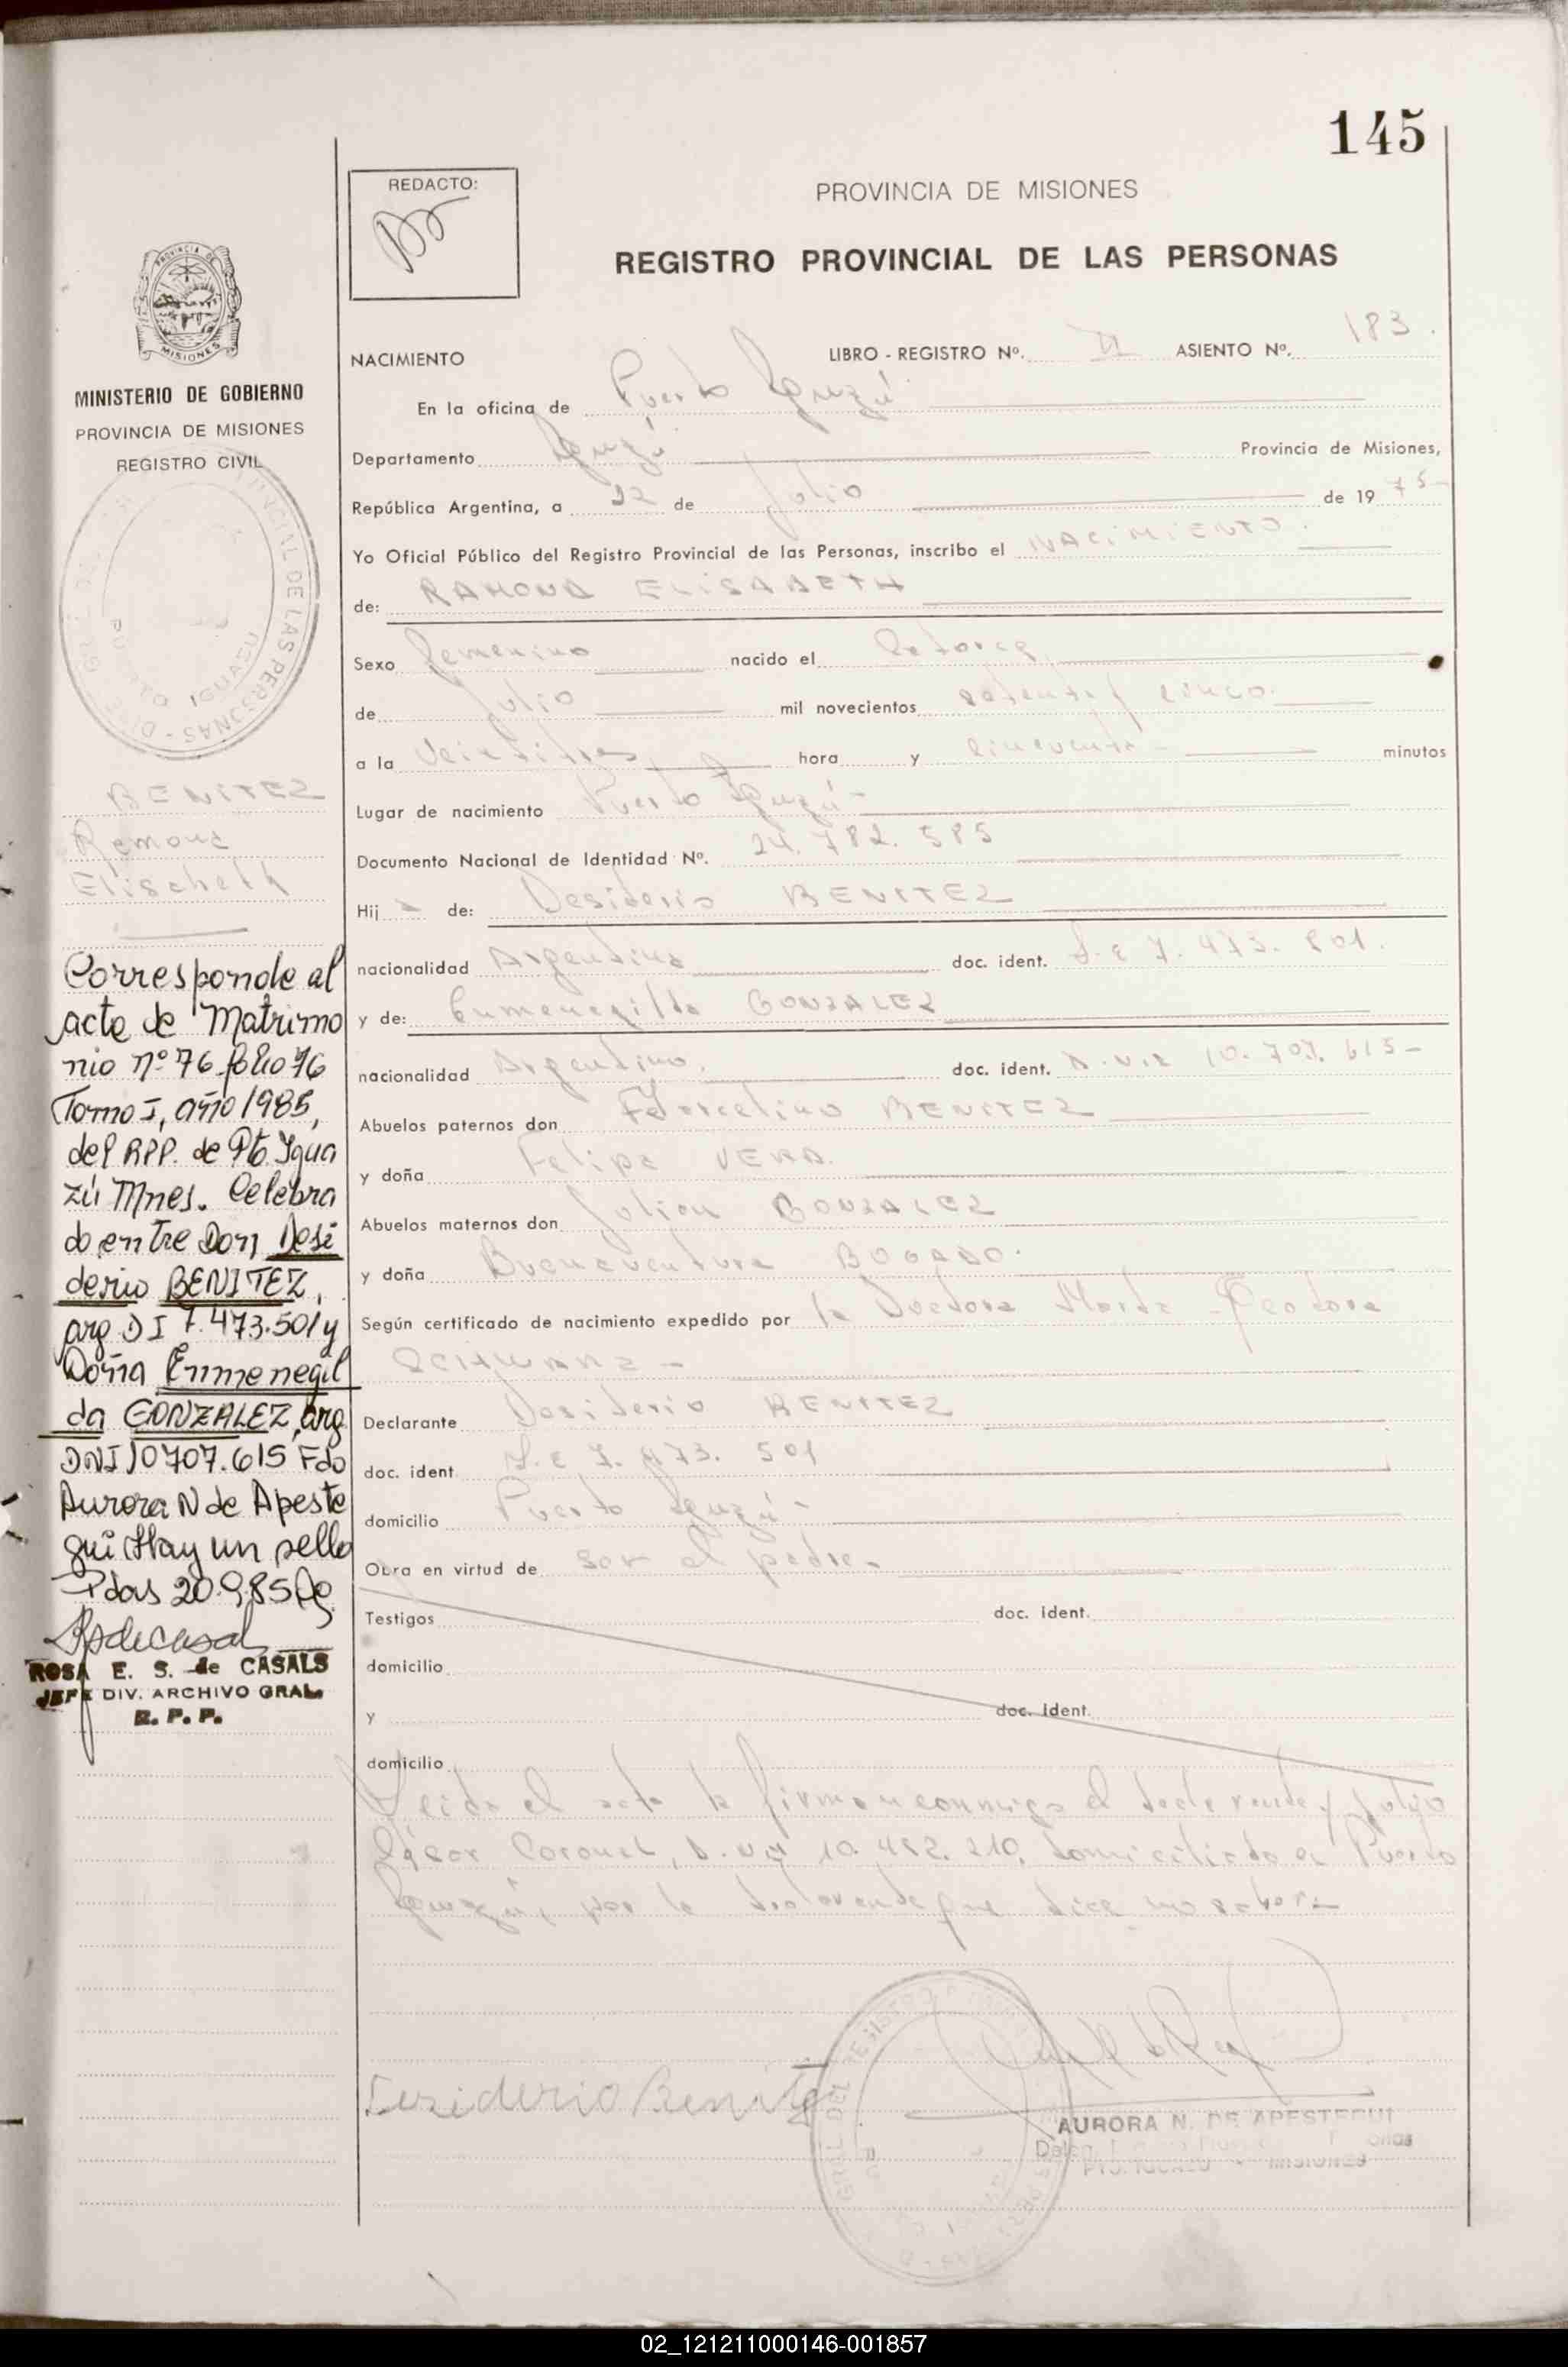 145
REDACTO:
PROVINCIA DE MISIONES
REGISTRO PROVINCIAL DE LAS PERSONAS
PROVINCIA DE
MISIONES
MINISTERIO DE GOBIERNO
PROVINCIA DE MISIONES
REGISTRO CIVIL
BENITEZ
Ramona
Elisabeth
Corresponde al
acta de Matrimo
nio nº 76 folio 76
Tomo I, año 1985,
del RPP. de Pto. Igua
zú Mnes. Celebra
do entre Don Desi
derio BENITEZ,
arg DI 7.473.501 y
Doña Ermenegil
da GONZALEZ, arg
DNI 10707.615 Fdo
Aurora N de Apeste
gui Hay un sello
Pdas 20.9.85
ROSA E. S. de CASALS
JEFE DIV. ARCHIVO GRAL.
R. P. P.
NACIMIENTO LIBRO - REGISTRO Nº. II ASIENTO Nº. 183.
En la oficina de Puerto Iguazú
Departamento Iguazú Provincia de Misiones,
República Argentina, a 22 de Julio de 1975-
Yo Oficial Público del Registro Provincial de las Personas, inscribo el NACIMIENTO.
de: RAMONA ELISABETH
Sexo Femenino nacido el Catorce
de Julio mil novecientos setenta y cinco.
a la Veintitres hora y cincuenta - minutos
Lugar de nacimiento Puerto Iguazú -
Documento Nacional de Identidad Nº. 24.782.585
Hija de: Desiderio BENITEZ
nacionalidad Argentina doc. ident. L.E 7.473.501.
y de: Eumenegilda GONZALEZ
nacionalidad Argentina. doc. ident. 10.707.615-
Abuelos paternos don Marcelino BENITEZ
y doña Felipa VERA.
Abuelos maternos don Julian GONZALEZ
y doña Buenaventura BOGADO.
Según certificado de nacimiento expedido por la Doctora Marta Teodora
SCHWARZ -
Declarante Desiderio BENITEZ
doc. ident. L.E 7.473.501
domicilio Puerto Iguazú -
Obra en virtud de ser el padre.
Testigos doc. ident.
domicilio
y doc. ident.
domicilio
Leida el acta la firman conmigo el declarante y Julio
Oscar Coronel, 10.482.210, domiciliado en Puerto
Iguazú, por la declarante que dice no saber
Desiderio Benitez
AURORA N. DE APESTEGUI
PTO. IGUAZU - MISIONES
02_121211000146-001857